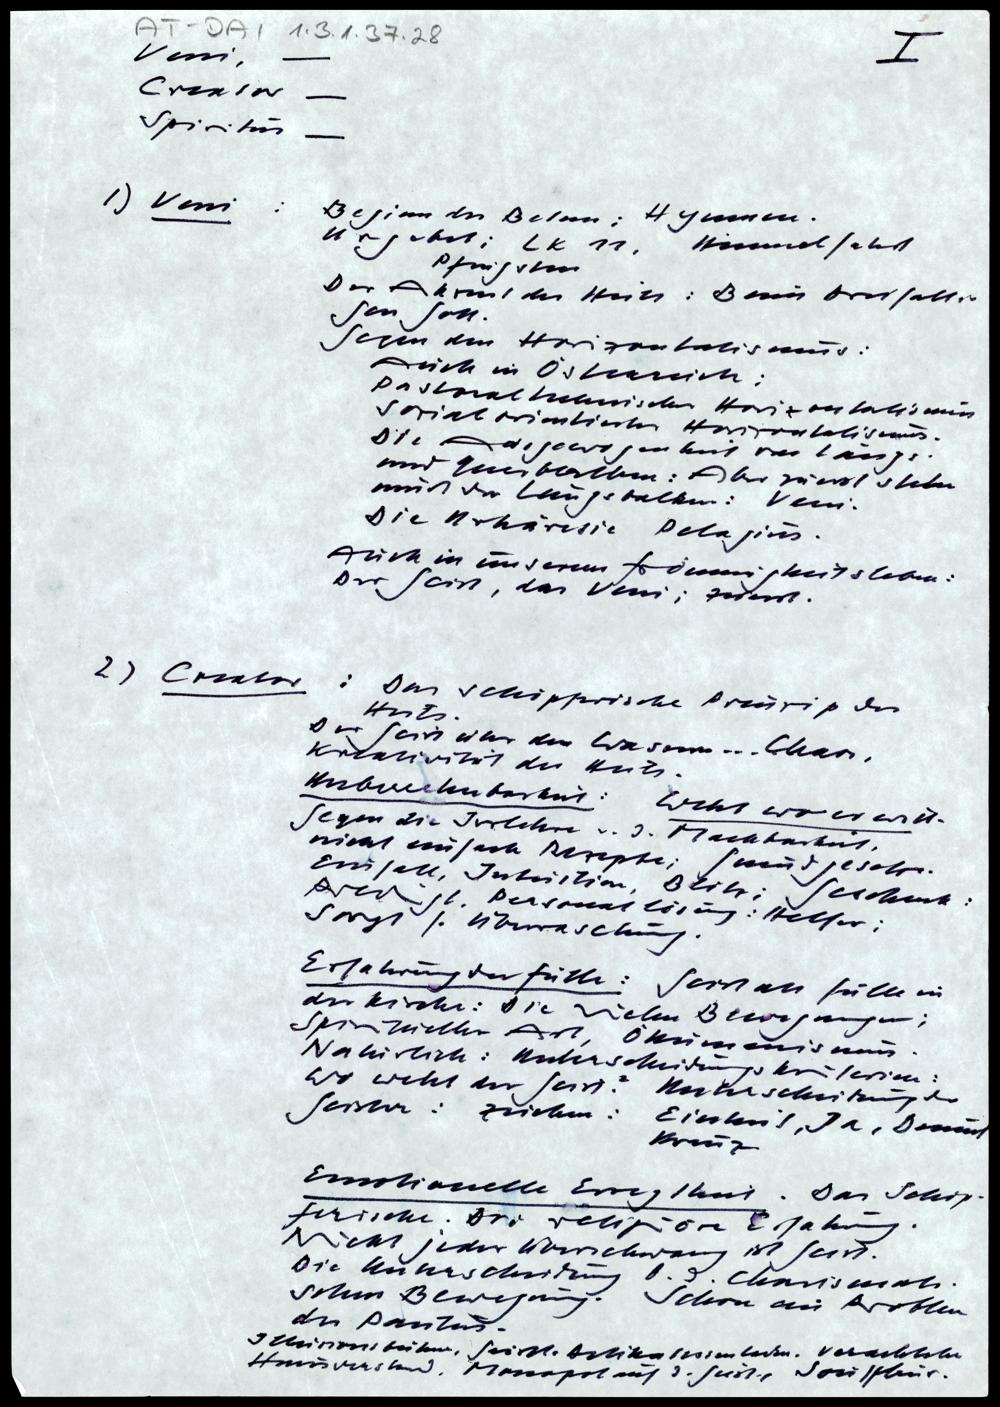 AT-DAI 1.3.1.37.28
I
Veni, —
Creator —
Spiritus —
1) Veni :
Beginn des Betens; Hymnen.
Urgebet; LK 11, Himmelfahrt
Pfingsten
Der Akzent des Heils: Beim dreifalti-
gen Gott.
Gegen den Horizontalismus:
Auch in Österreich:
Pastoraltechnischer Horizontalismus
Sozial orientierter Horizontalismus.
Die Ausgewogenheit von Längs-
und Querbalken: Aber zuerst stehe
muß der Längsbalken: Veni.
Die Urhäresie Pelagius.
Auch in unserem Frömmigkeitsleben:
Der Geist, das Veni; zuerst.
2) Creator : Das schöpferische Prinzip des
Heils.
Der Geist über den Wassern ... Chaos.
Kreativität des Heils.
Unberechenbarkeit: Weht wo er will.
Gegen die Irrlehre v. d. Machbarkeit.
nicht einfach Rezepte;
Einfall, Intuition, Blitz; Geschenk:
Personallösung: Helfer;
Sorgt f. Überraschung.
Erfahrung der Fülle: Geist als Fülle in
der Kirche: Die vielen Bewegungen;
Spiritueller Art, Ökumenismus.
Natürlich: Unterscheidungskriterien:
Wo weht der Geist? Unterscheidung der
Geister: Zeichen: Einheit, Ja, Demut
Kreuz
Emotionelle Erregtheit. Das Schöp-
ferische. Die religiöse Erfahrung.
Nicht jeder Überschwang ist Geist.
Die Unterscheidung b. d. Charismati-
schen Bewegung. Schon ein Problem
des Paulus.
Geistl. Delikatessenladen. Verachtete
Hausverstand. Monopol auf d. Geist, Souffleur.